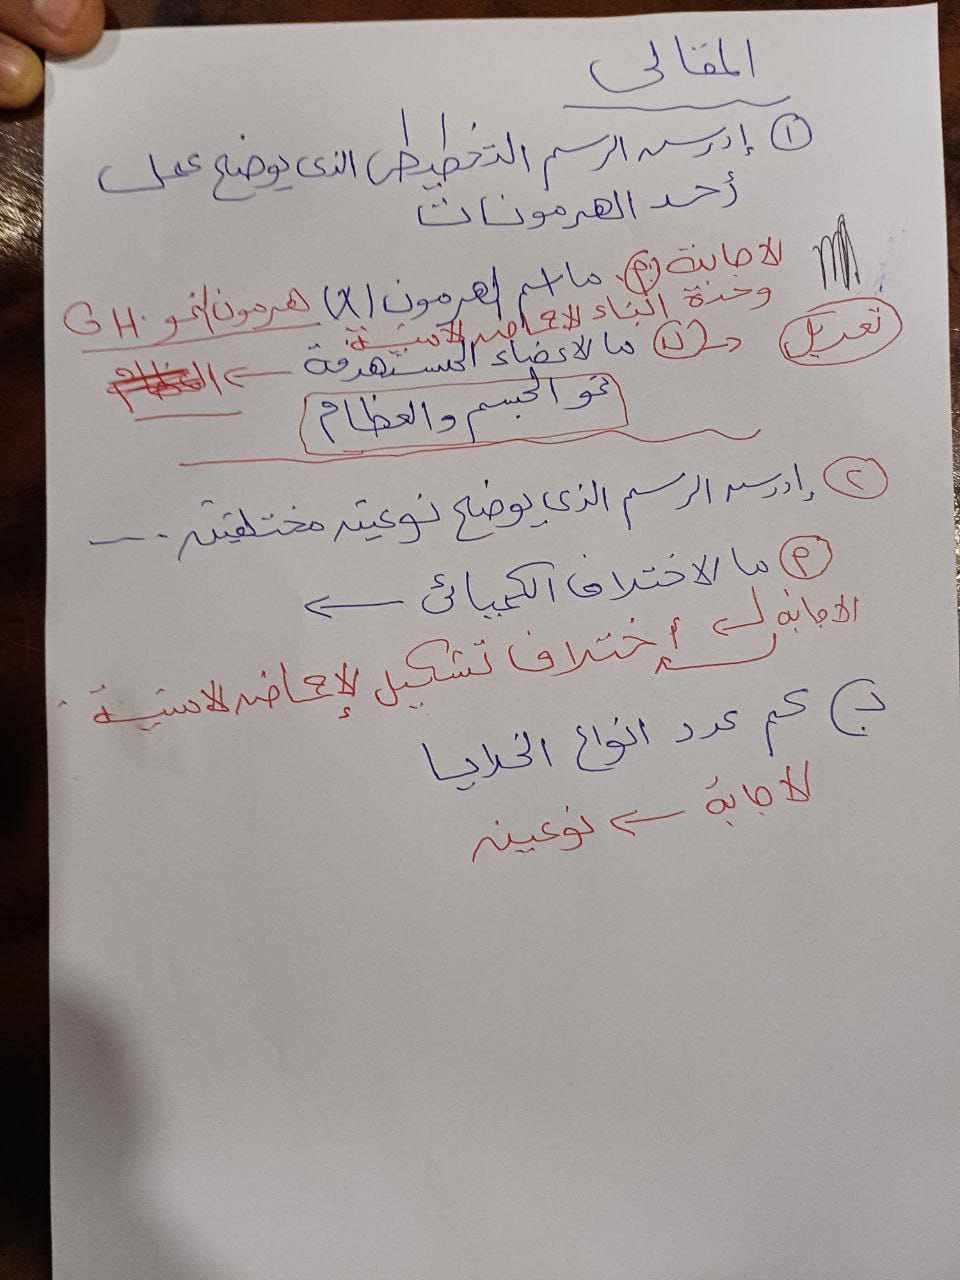 المقالى
① إدرس الرسم التخطيطى الذى يوضح عمل
أحد الهرمونات
الاجابة Ⓟ ما اسم الهرمون (X) هرمون النمو GH.
وحدة البناء الاحماض الامينية
تعديل ← ب ما الاعضاء المستهدفة ←
نمو الجسم والعظام
② إدرس الرسم الذى يوضح نوعين مختلفين ...
Ⓟ ما الاختلاف الكيميائى ←
الاجابة ← إختلاف تشكيل الإحماض الامينية
ب) كم عدد انواع الخلايا
الاجابة ← نوعين